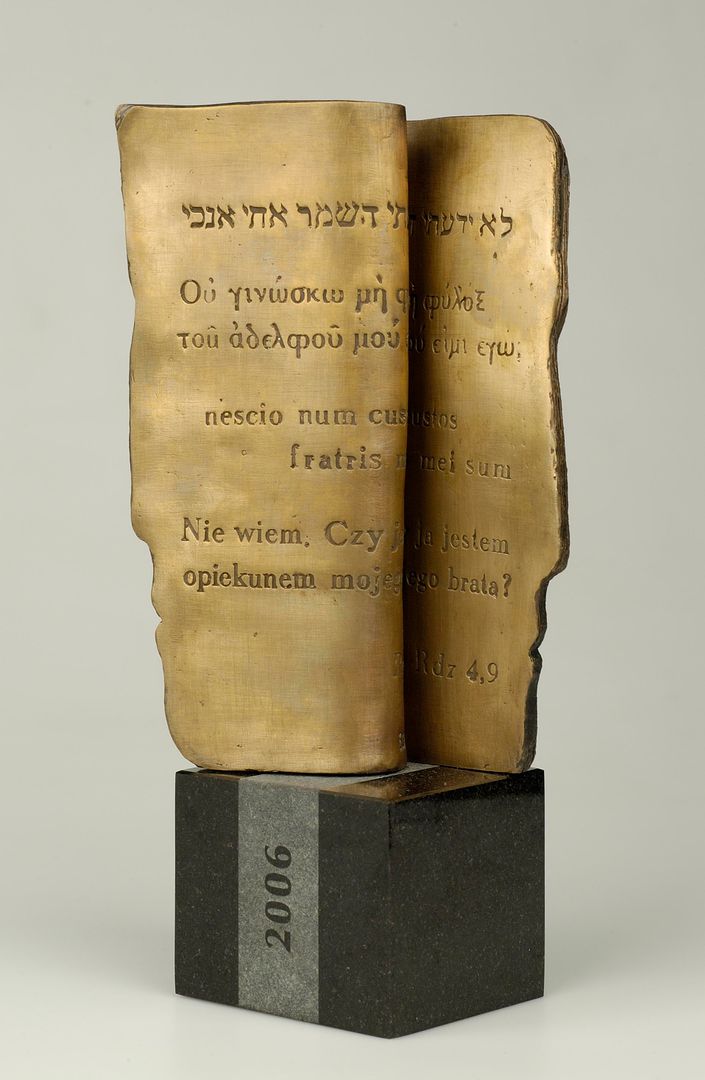 לא ידעתי השמר אחי אנכי
Οὐ γινώσκω μὴ φύλοξ
τοῦ ἀδελφοῦ μού εἰμι εγώ;
nescio num custos
fratris mei sum
Nie wiem. Czy ja jestem
opiekunem mojego brata?
Rdz 4,9
2006